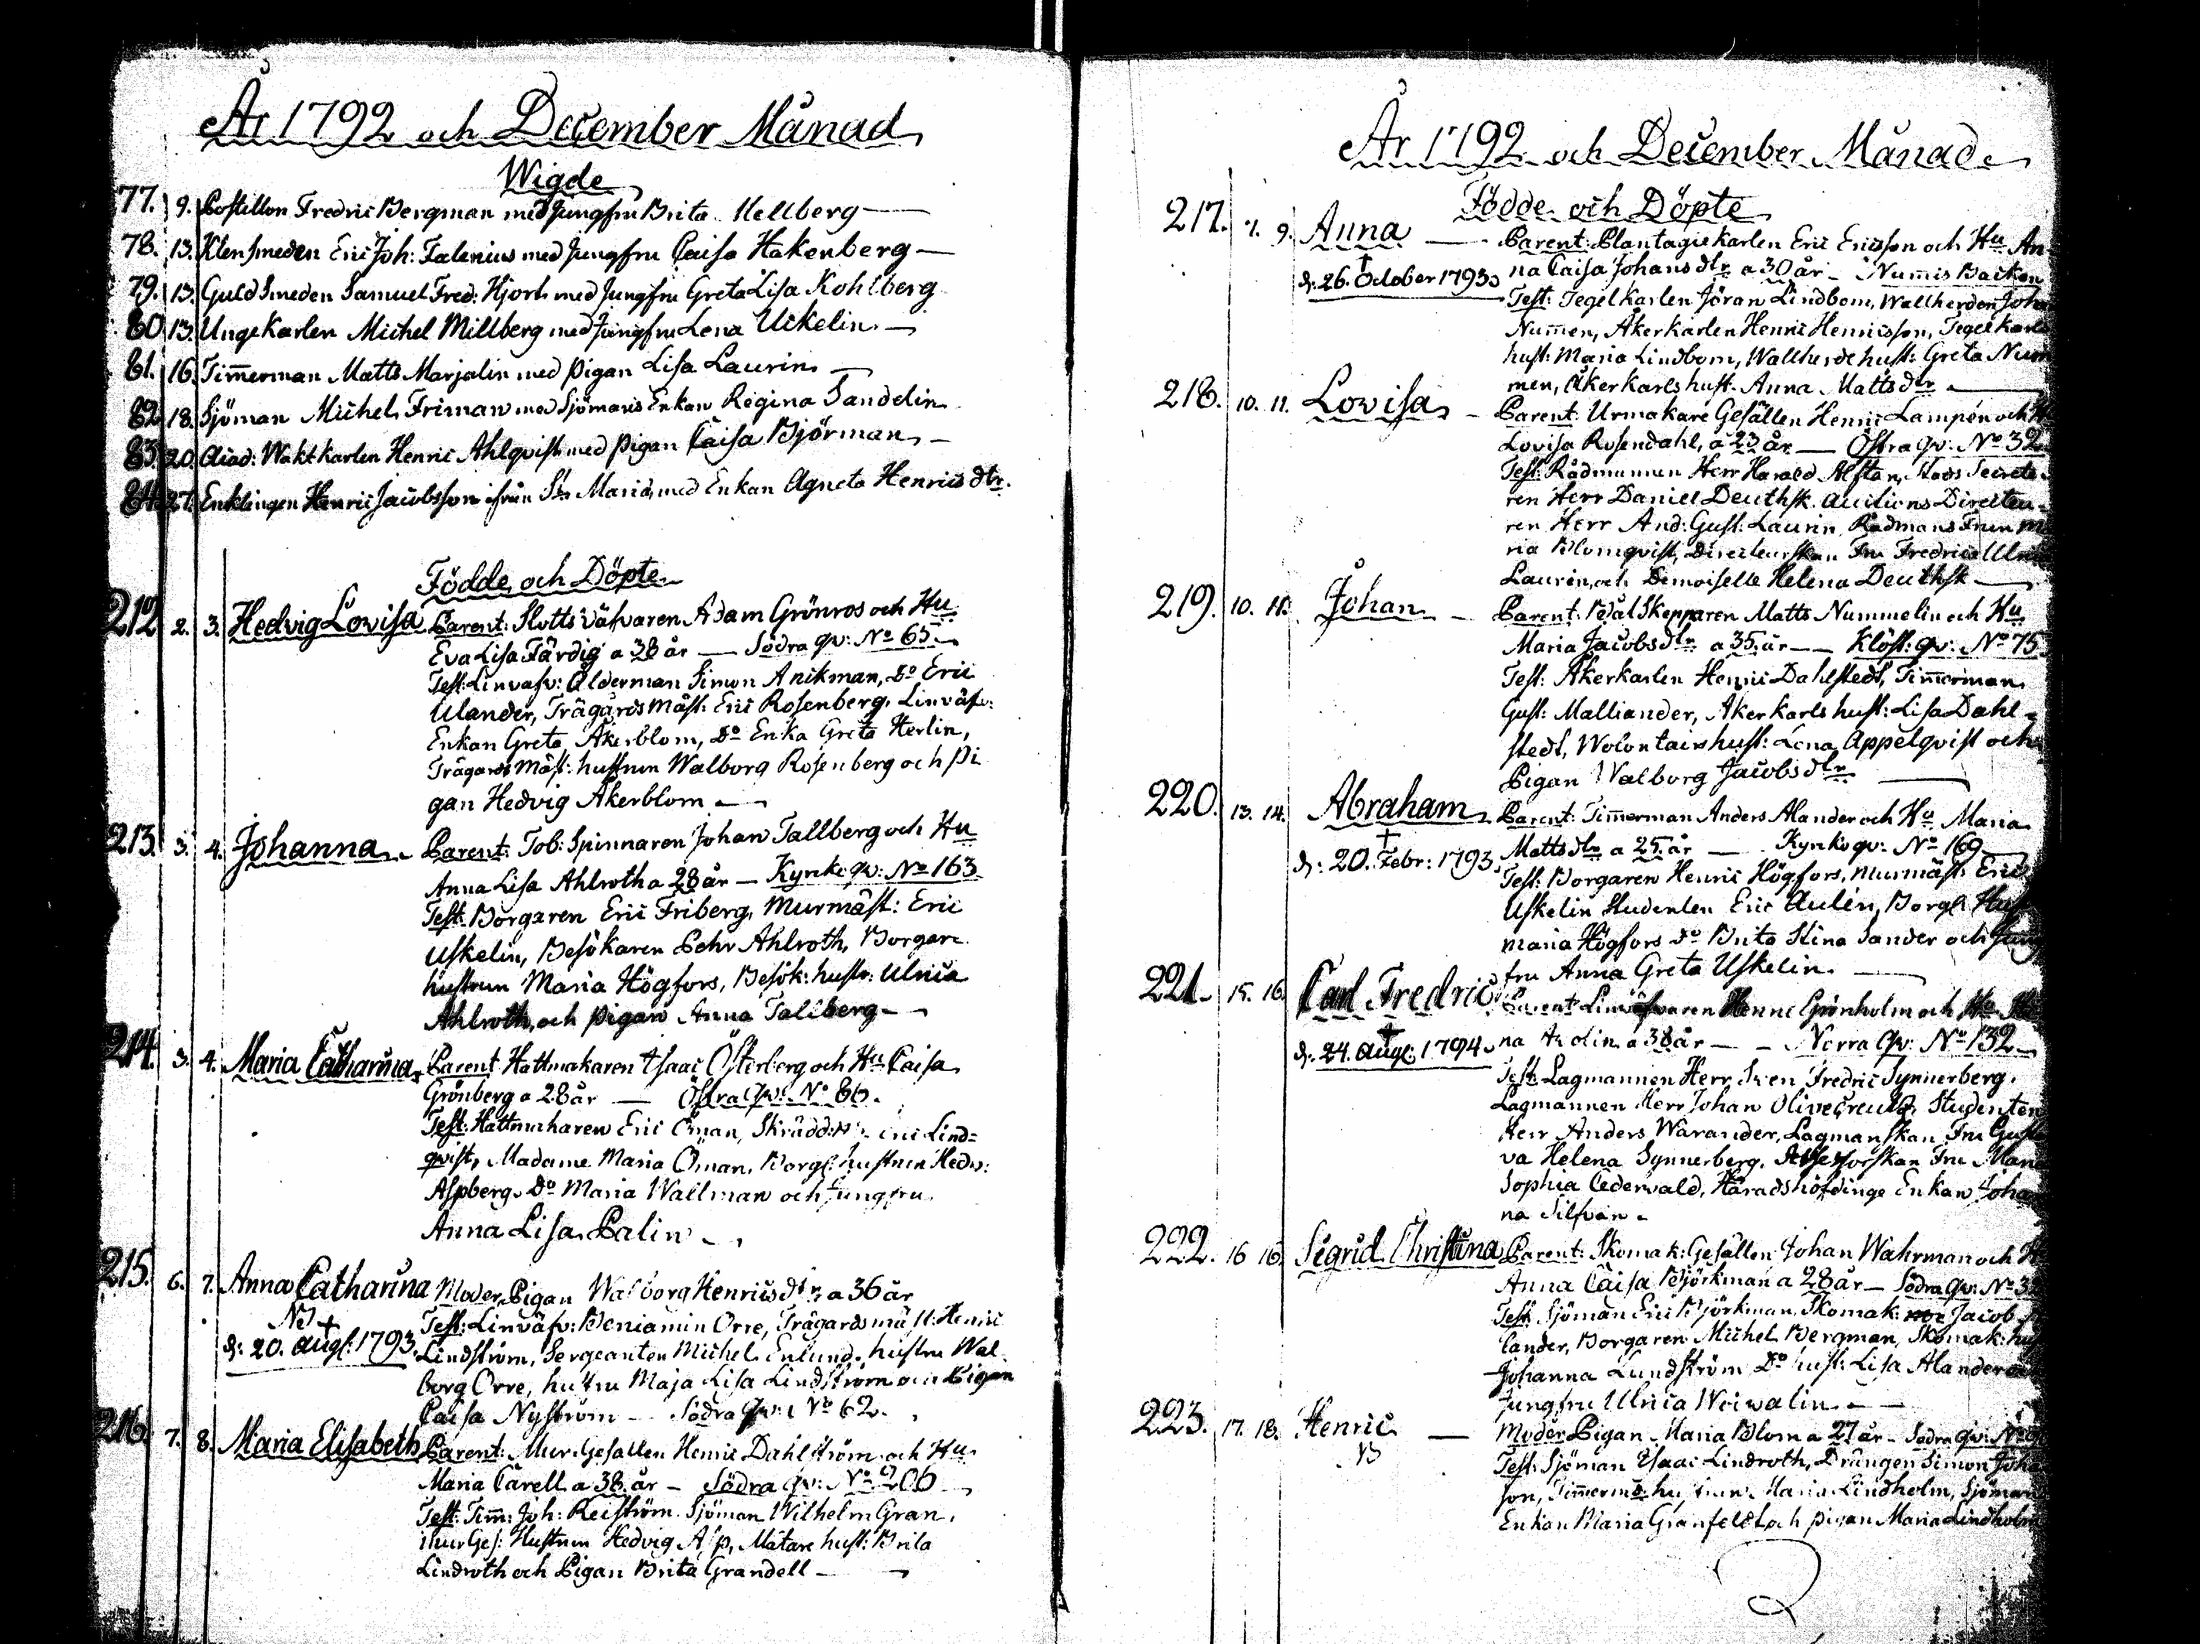 År 1792 och December Månad
Wigde
77. 9. Postillon Fredric Bergman med Jungfru Brita Hellberg
78. 13. Klensmeden Eric Joh: Falenius med Jungfru Caisa Hakenberg
79. 13. Guld Smeden Samuel Fred: Hjorth med Jungfru Greta Lisa Kohlberg
80 13. Unge Karlen Michel Millberg med Jungfru Lena Uskelin
81. 16. Timerman Matts Marjalin med pigan Lisa Laurin
82 18. Sjöman Michel Friman med Sjömans Enkan Regina Sandelin
83. 20. Acad: Wakt karlen Henric Ahlqvist med pigan Caisa Björman
84. 27. Enklingen Henric Jacobsson ifrån S:t Marie med Enkan Agneta Henrics dtr.
Födde och Döpte
212 2. 3. Hedvig Lovisa Parent: Slotts Väfvaren Adam Grönros och Hu
Eva Lisa Färdig a 38 år — Södra qv: No 65.
Test: Linväfv: Ålderman Simon Anikman, Do Eric
Ulander, Trägårds mäst: Eric Rosenberg, Linväfv:
Enkan Greta Åkerblom, Do Enka Greta Herlin,
Trägårds Mäst: hustrun Walborg Rosenberg och Pi
gan Hedvig Åkerblom
213. 3. 4. Johanna Parent: Tob: Spinnaren Johan Tallberg och Hu
Anna Lisa Ahlroth a 28 år — Kynke qv: No 163
Test: Borgaren Eric Friberg, Murmäst: Eric
Uskelin, Besökaren Pehr Ahlroth, Borgare
hustrun Maria Högfors, Besök: hustr: Ulrica
Ahlroth, och pigan Anna Tallberg
214. 3. 4. Maria Catharina Parent Hattmakaren Isaac Österberg och Hu Caisa
Grönberg a 28 år — Östra Qv: No 86.
Test: Hattmakaren Eric Öman, Skrädd: Eric Lind=
qvist, Madame Maria Öman, Borg: hustrun Hedv:
Aspberg, Do Maria Wallman och Jungfru
Anna Lisa Palin
215. 6. 7. Anna Catharina Moder Pigan Walborg Henrics dtr a 36 år
NB †
d: 20. Aug: 1793.
Test: Linväfv: Beniamin Orre, Trägårds mäst: Henric
Lindström, Sergeanten Michel Enlund, hustru Wal
borg Orre, hustru Maja Lisa Lindström och Pigan
Caisa Nyström — Södra qv: No 62.
216. 7. 8. Maria Elisabeth Parent: Mur Gesällen Henric Dahlström och Hu
Maria Carell a 38 år — Södra qv: No 206
Test: Tim: Joh: Reiström, Sjöman Wilhelm Gran,
Mur Ges: Hustrun Hedvig Asp, Mätare hust: Brita
Lindroth och Pigan Brita Grandell
År 1792 och December Månad
Födde och Döpte
217. 7. 9. Anna — Parent: Plantagie Karlen Eric Ericsson och Hu An
†
d: 26. October 1793
na Caisa Johans dtr a 30 år — Numis Backen
Test: Tegel Karlen Jöran Lindbom, Wallherden Joha
Numen, Åkerkarlen Henric Henricsson, Tegel Karls
hust: Maria Lindbom, Wallherde hust: Greta Num
men, Åker Karls hust: Anna Matts dtr
218. 10. 11. Lovisa — Parent: Urmakare Gesällen Henric Lampén och
Lovisa Rosendahl, a 23 år — Östra qv: No 32
Test: Rådmannen Herr Harald Alftan, Stads Secrete
ren Herr Daniel Deuthsk. Auctions Directeu=
ren Herr And: Gust: Laurin, Rådmans Frun Ma
ria Blomqvist, Directeurskan Fru Fredrica Ulric
Laurin, och Demoiselle Helena Deuthsk
219. 10. 11. Johan — Parent: Pråål Skepparen Matts Nummelin och Hu
Maria Jacobs dtr a 35 år — Klöst: qv: No 75
Test: Åkerkarlen Henric Dahlstedt, Timerman
Gust: Malliander, Åker karls hust: Lisa Dahl=
stedt, Wolontairs hust: Lena Appelqvist och
Pigan Walborg Jacobs dtr
220. 13. 14. Abraham Parent: Timerman Anders Alander och Hu Maria
†
d: 20. Febr: 1793.
Matts dtr a 25 år — Kynke qv: No 169
Test: Borgaren Henric Högfors, Murmäst: Eric
Uskelin Studenten Eric Aulén, Borg: Hust
Maria Högfors Do Brita Stina Sander och Jung
fru Anna Greta Uskelin.
221. 15. 16. Carl Fredric Parent Linväfvaren Henric Grönholm och Hu
†
d: 24. Aug: 1794
na Ardin a 38 år — Norra Qv: No 132
Test: Lagmannen Herr Sven Fredric Synnerberg,
Lagmannen Herr Johan Olivecreutz, Studenten
Herr Anders Warander, Lagmanskan Fru Gusta
va Helena Synnerberg, Assessorskan Fru Mari
Sophia Cederwald, Häradshöfdinge Enkan Johan
na Silfvan
222. 16 16. Sigrid Christina Parent: Skomak: Gesällen Johan Wahrman och
Anna Caisa Björkman a 28 år — Södra qv: No 3
Test: Sjöman Eric Björkman, Skomak: Jacob
lander, Borgaren Michel Bergman, Skomak: hu
Johanna Lundström Do hust: Lisa Alander
Jungfru Ulrica Weiwalin
223. 17. 18. Henric — Moder Pigan Maria Blom a 27 år — Södra qv: No
NB
Test: Sjöman Isaac Lindroth, Drängen Simon Joha
son, Timerm: hustrun Maria Lindholm, Sjöman
Enkan Maria Granfeldt och pigan Maria Lindholm